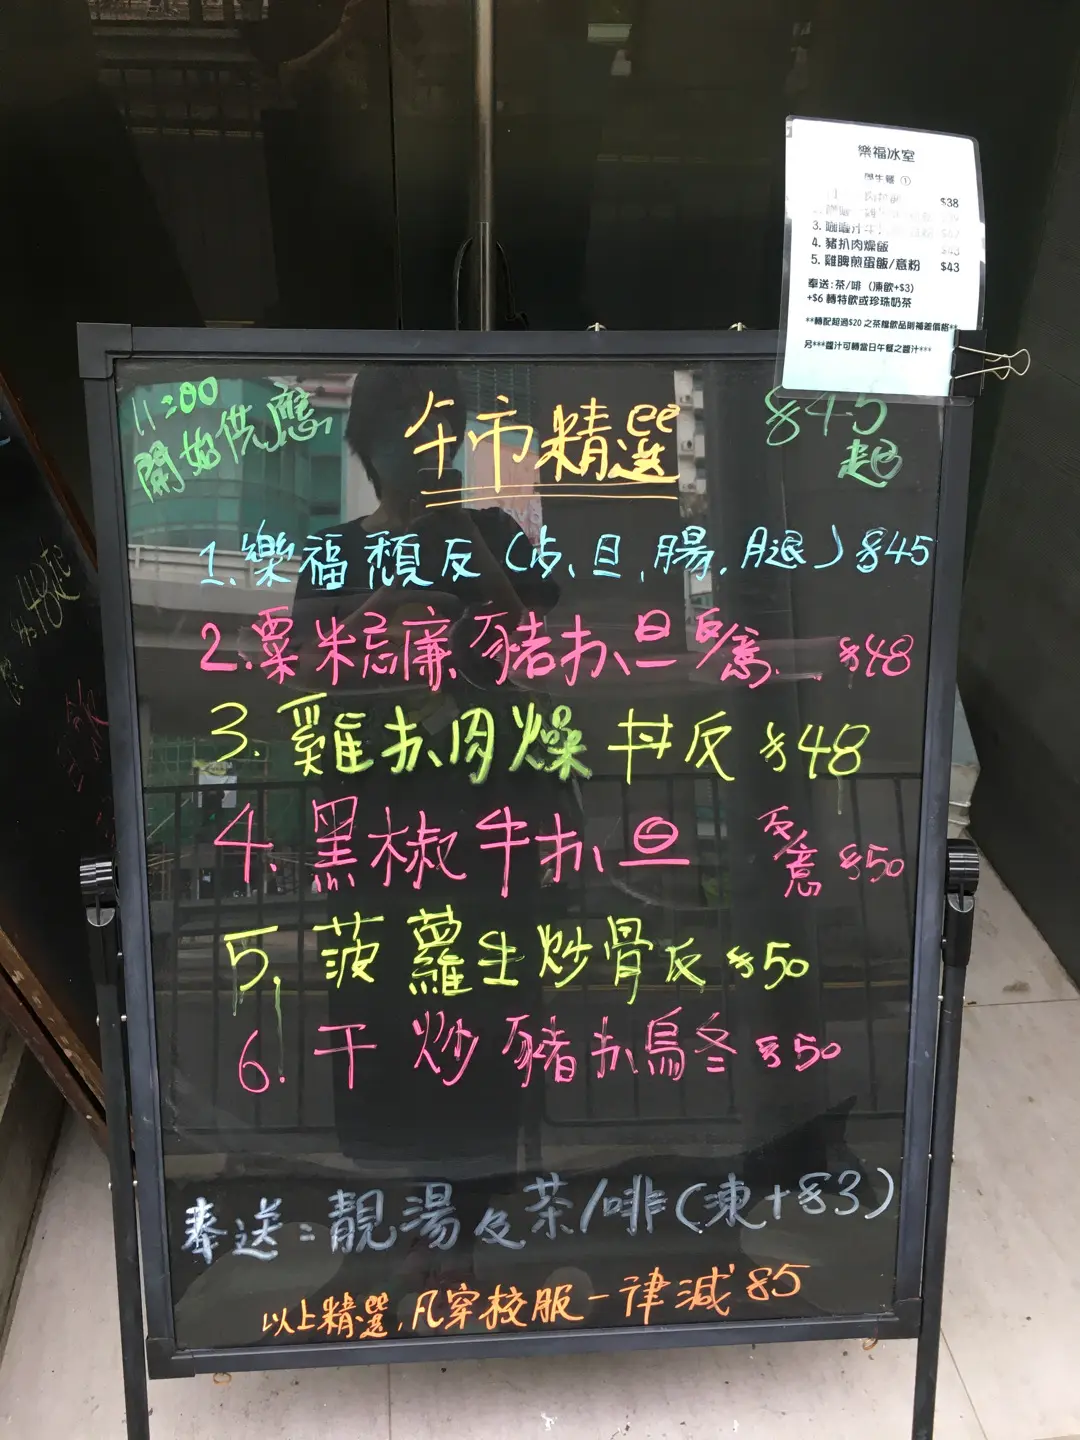 樂福冰室
學生餐 ①
$38
3. 咖喱汁牛
4. 豬扒肉燥飯 $43
5. 雞脾煎蛋飯/意粉 $43
奉送:茶/啡 (凍飲+$3)
+$6 轉特飲或珍珠奶茶
**轉配超過$20 之茶檔飲品則補差價格**
另***醬汁可轉當日午餐之醬汁***
11:00
開始供應
午市精選
$45
起
1. 樂福頹反 (皮、旦、腸、腿) $45
2. 粟米忌廉豬扒旦反/意 $48
3. 雞扒肉燥丼反 $48
4. 黑椒牛扒旦 反/意 $50
5. 菠蘿生炒骨反 $50
6. 干炒豬扒烏冬 $50
奉送:靚湯及茶/啡(凍+$3)
以上精選,凡穿校服一律減$5